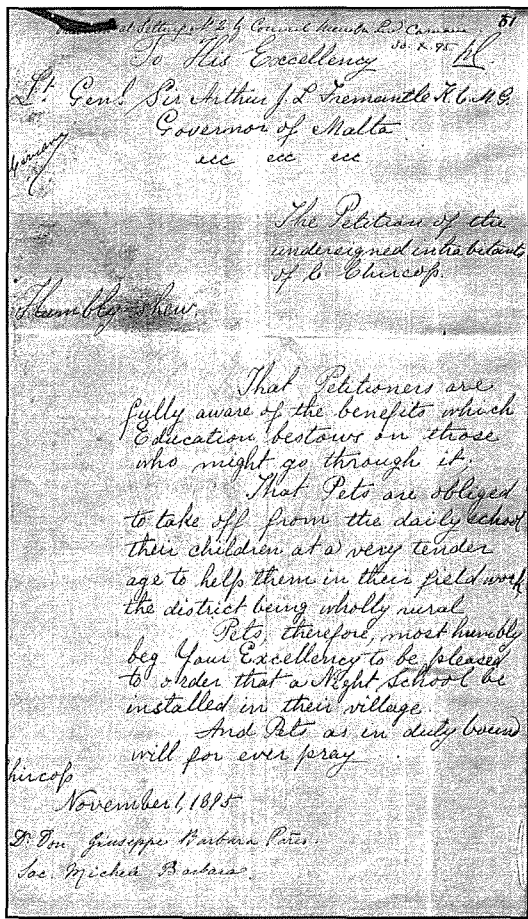 at Sitting of
Council
30. X. 95
51
To His Excellency
Lt. Genl. Sir Arthur J. L. Fremantle K.C.M.G.
Governor of Malta
ecc ecc ecc
The Petition of the
undersigned inhabitants
of Ca Chircop.
Humbly shew.
That Petitioners are
fully aware of the benefits which
Education bestows on those
who might go through it;
That Pets are obliged
to take off from the daily school
their children at a very tender
age to help them in their field work
the district being wholly rural
Pets, therefore, most humbly
beg Your Excellency to be pleased
to order that a Night School be
installed in their village.
And Pets as in duty bound
will for ever pray
hircop
November 1, 1895
Dr. Don Giuseppe Barbara
Sac. Michele Barbara